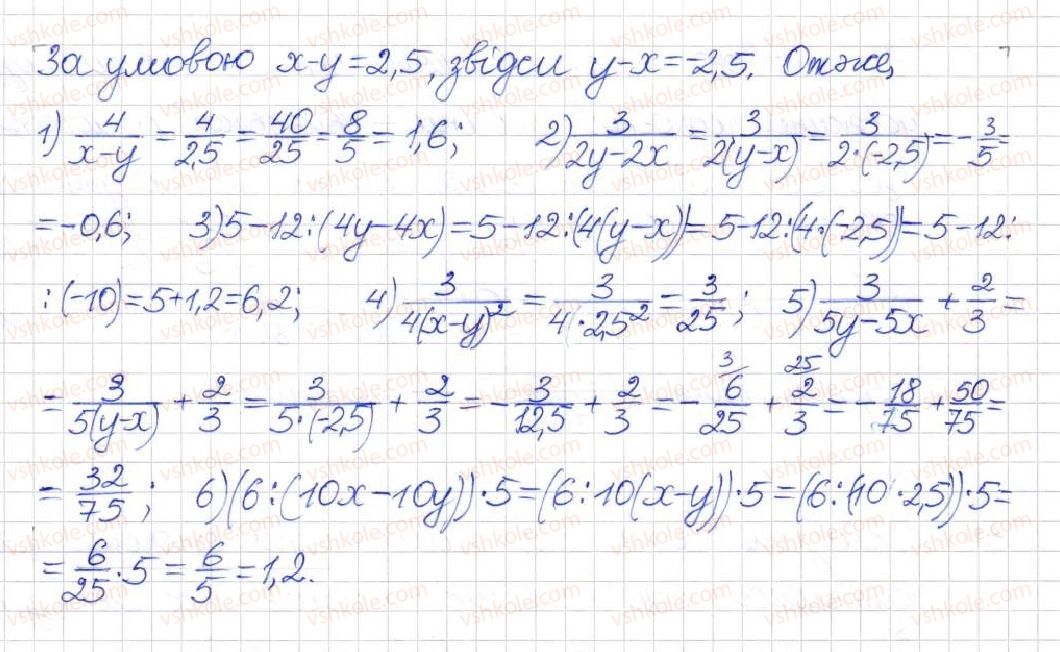 За умовою x-y=2,5, звідси y-x=-2,5. Отже,
1) 4/(x-y) = 4/2,5 = 40/25 = 8/5 = 1,6; 2) 3/(2y-2x) = 3/(2(y-x)) = 3/(2·(-2,5)) = -3/5 =
= -0,6; 3) 5-12:(4y-4x) = 5-12:(4(y-x)) = 5-12:(4·(-2,5)) = 5-12:
:(-10) = 5+1,2 = 6,2; 4) 3/(4(x-y)²) = 3/(4·2,5²) = 3/25; 5) 3/(5y-5x) + 2/3 =
= 3/(5(y-x)) + 2/3 = 3/(5·(-2,5)) + 2/3 = -3/12,5 + 2/3 = - ³⁄6/25 + ²⁵⁄2/3 = -18/75 + 50/75 =
= 32/75; 6) (6:(10x-10y))·5 = (6:10(x-y))·5 = (6:(10·2,5))·5 =
= 6/25·5 = 6/5 = 1,2.